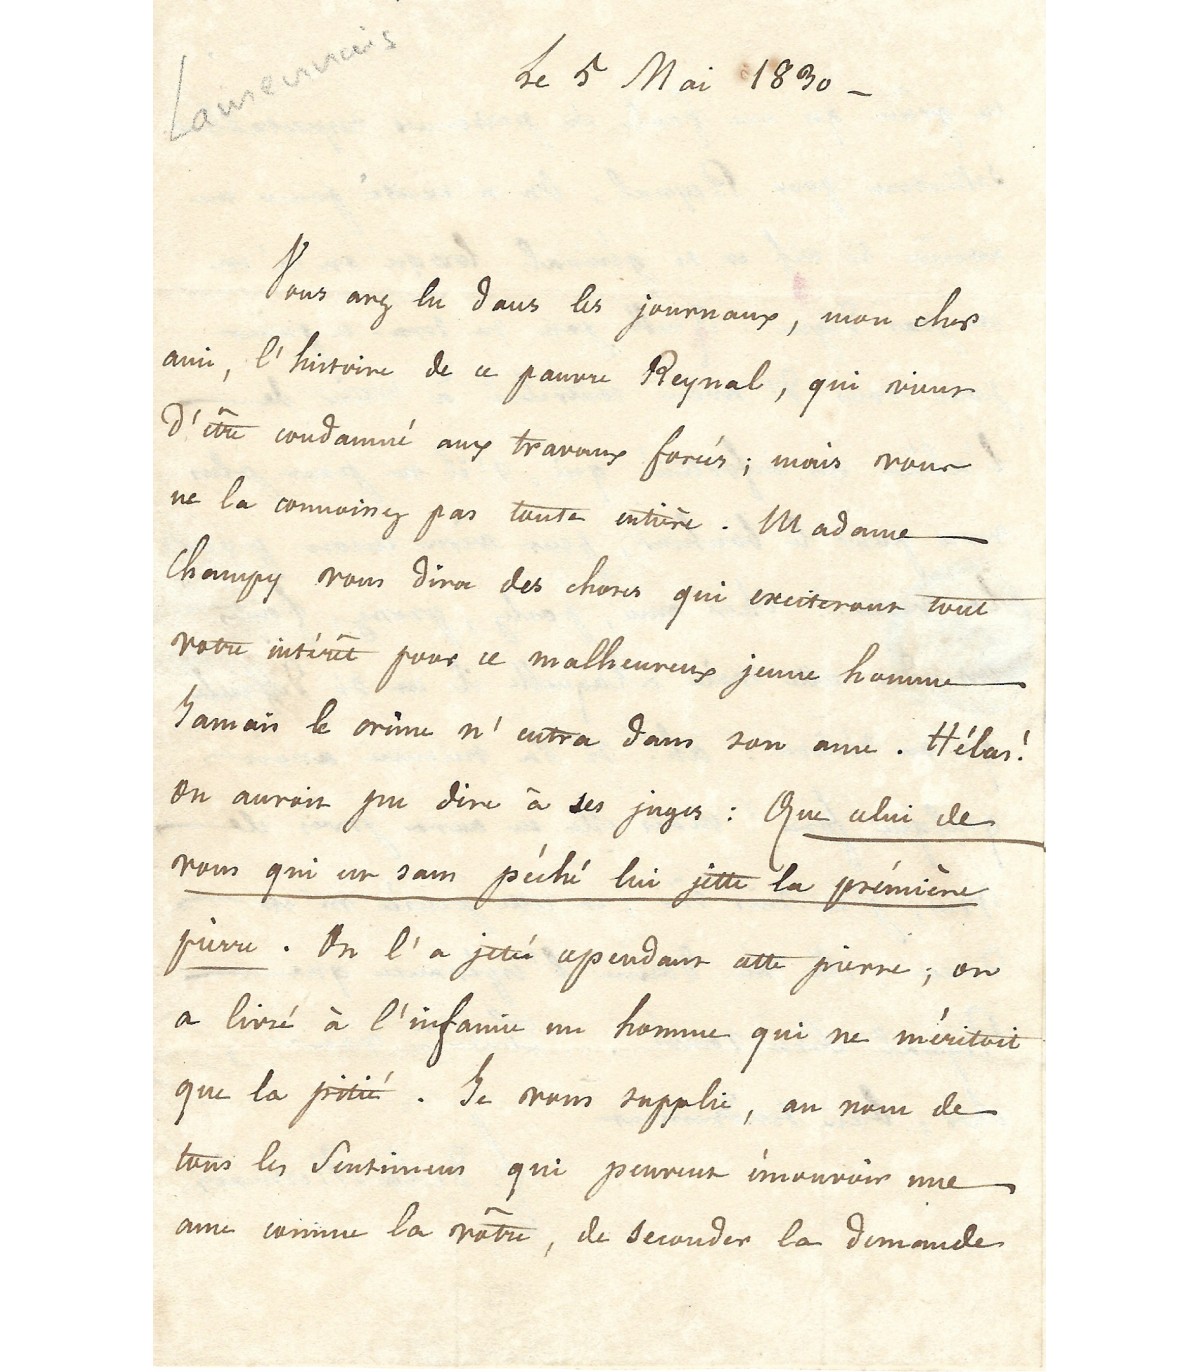 Lamennais
Le 5 Mai 1830 _
Vous avez lu dans les journaux, mon cher
ami, l'histoire de ce pauvre Reynal, qui vient
d'être condamné aux travaux forcés ; mais vous
ne la connoissez pas toute entière. Madame
Champy vous dira des choses qui exciteront tout
votre intérêt pour ce malheureux jeune homme
Jamais le crime n'entra dans son ame. Hélas!
on auroit pu dire à ses juges : Que celui de
vous qui est sans péché lui jette la prémière
pierre. On l'a jetée cependant cette pierre ; on
a livré à l'infamie un homme qui ne méritoit
que la pitié. Je vous supplie, au nom de
tous les sentimens qui peuvent émouvoir une
ame comme la vôtre, de seconder la demande